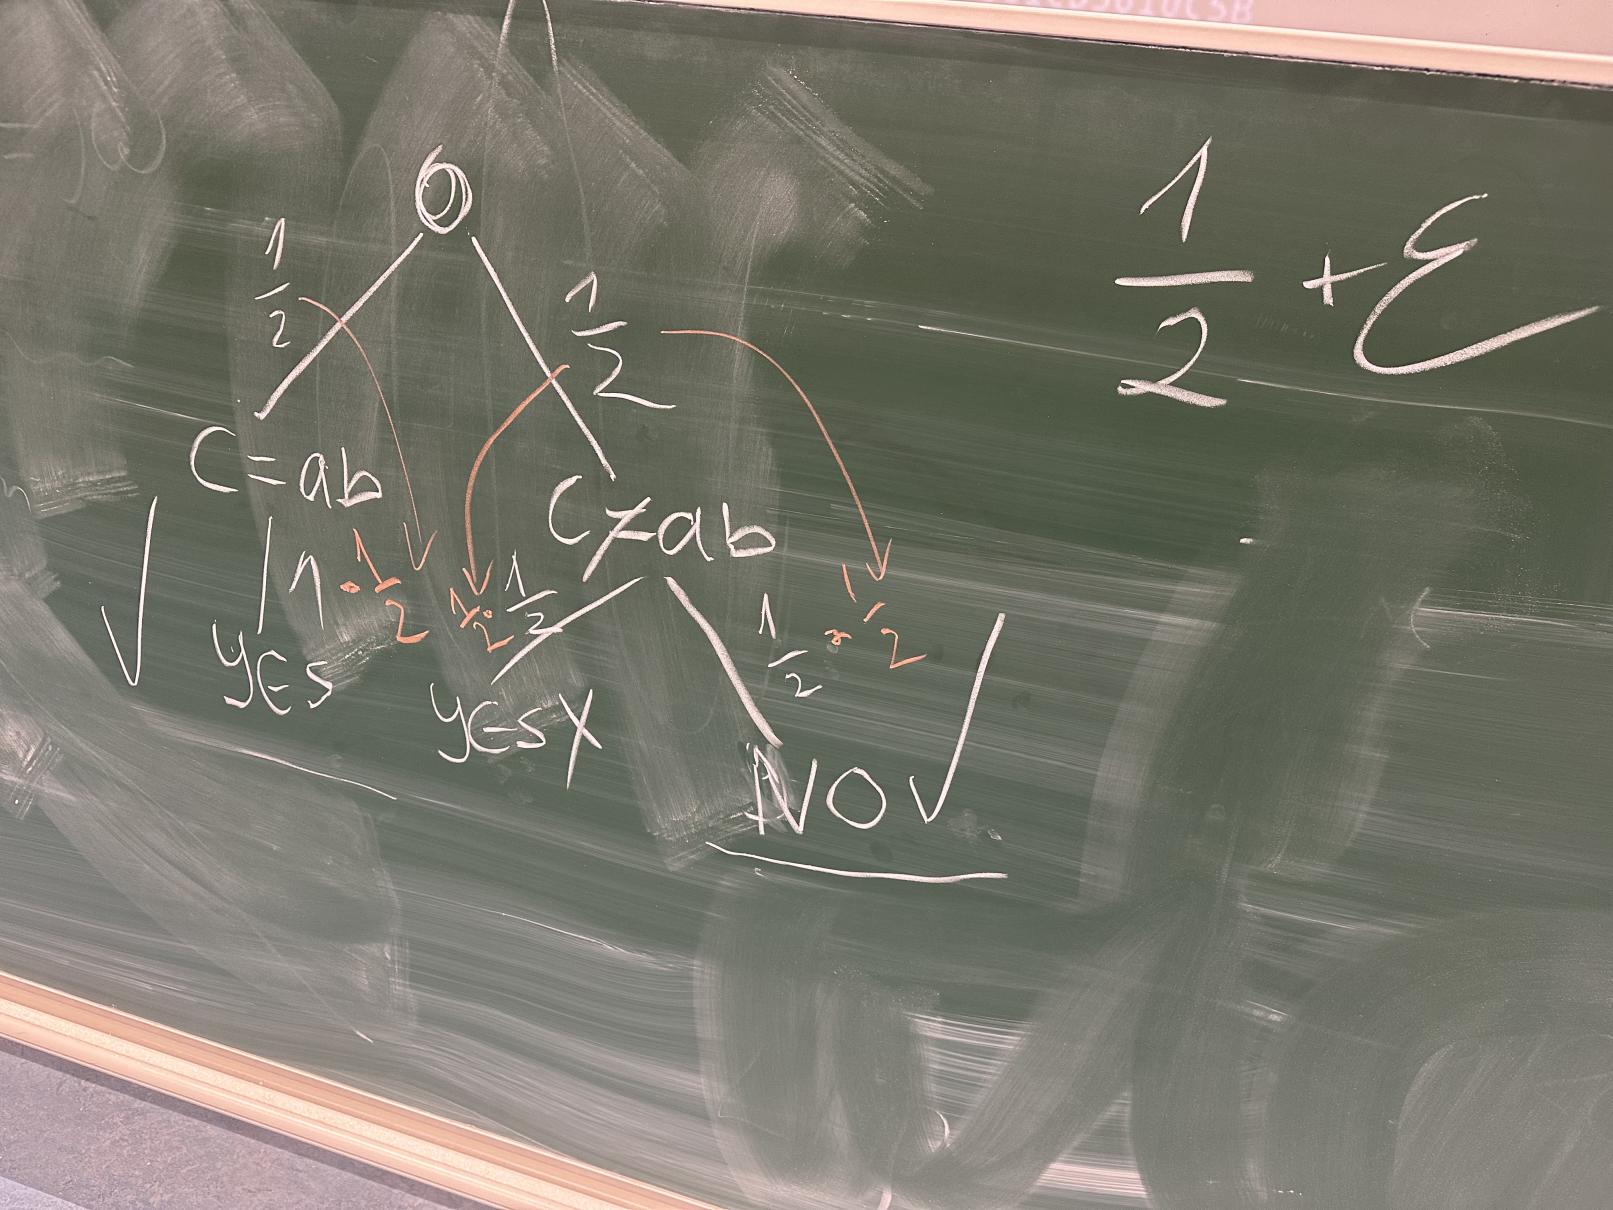 1/2 + ε
1/2
1/2
C = ab
C ≠ ab
1 · 1/2
1/2 · 1/2
1/2 · 1/2
YES
YES X
NO ✓
✓